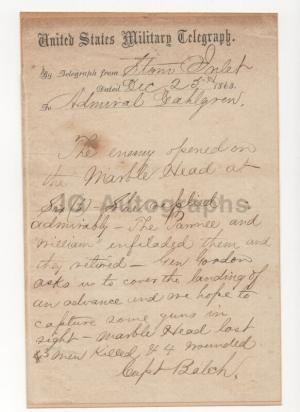 United States Military Telegraph.
By Telegraph from Stono Inlet
Dated Dec 25th 1863.
To Admiral Dahlgren.
The enemy opened on
the Marble Head at
replied
admirably - The Pawnee and
William enfiladed them and
they retired - Gen Gordon
asks us to cover the landing of
an advance and we hope to
capture some guns in
sight - Marble Head lost
3 men killed & 4 wounded.
Capt Balch.
JG Autographs